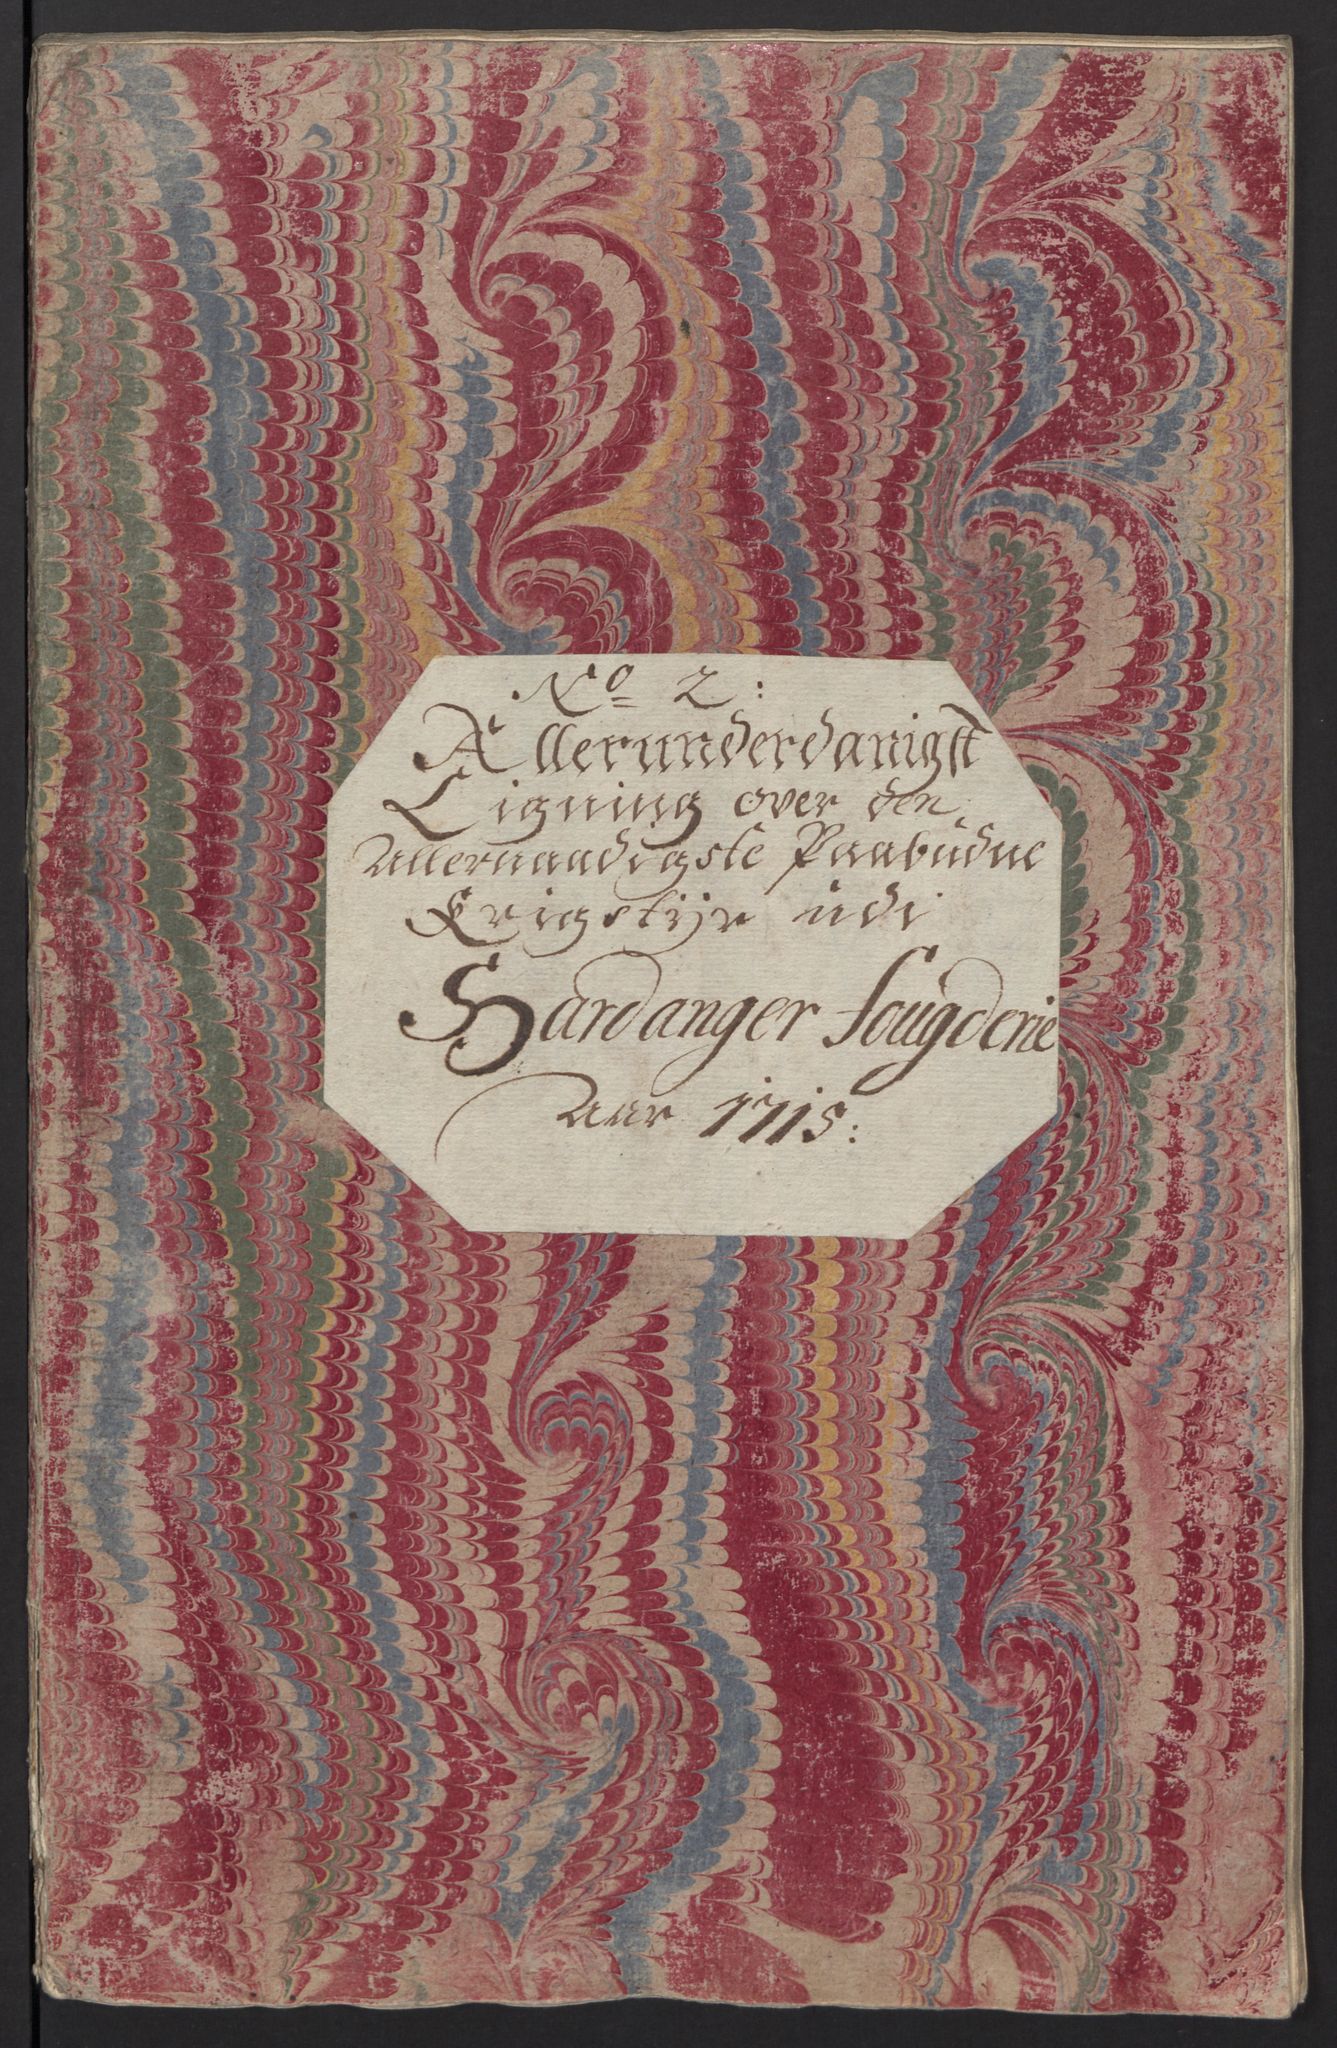 No 2:
Allerunderdanigst
Ligning over den
Allernaadigste Paabudne
Krigstyr udi
Hardanger fougderie
Aar 1715: